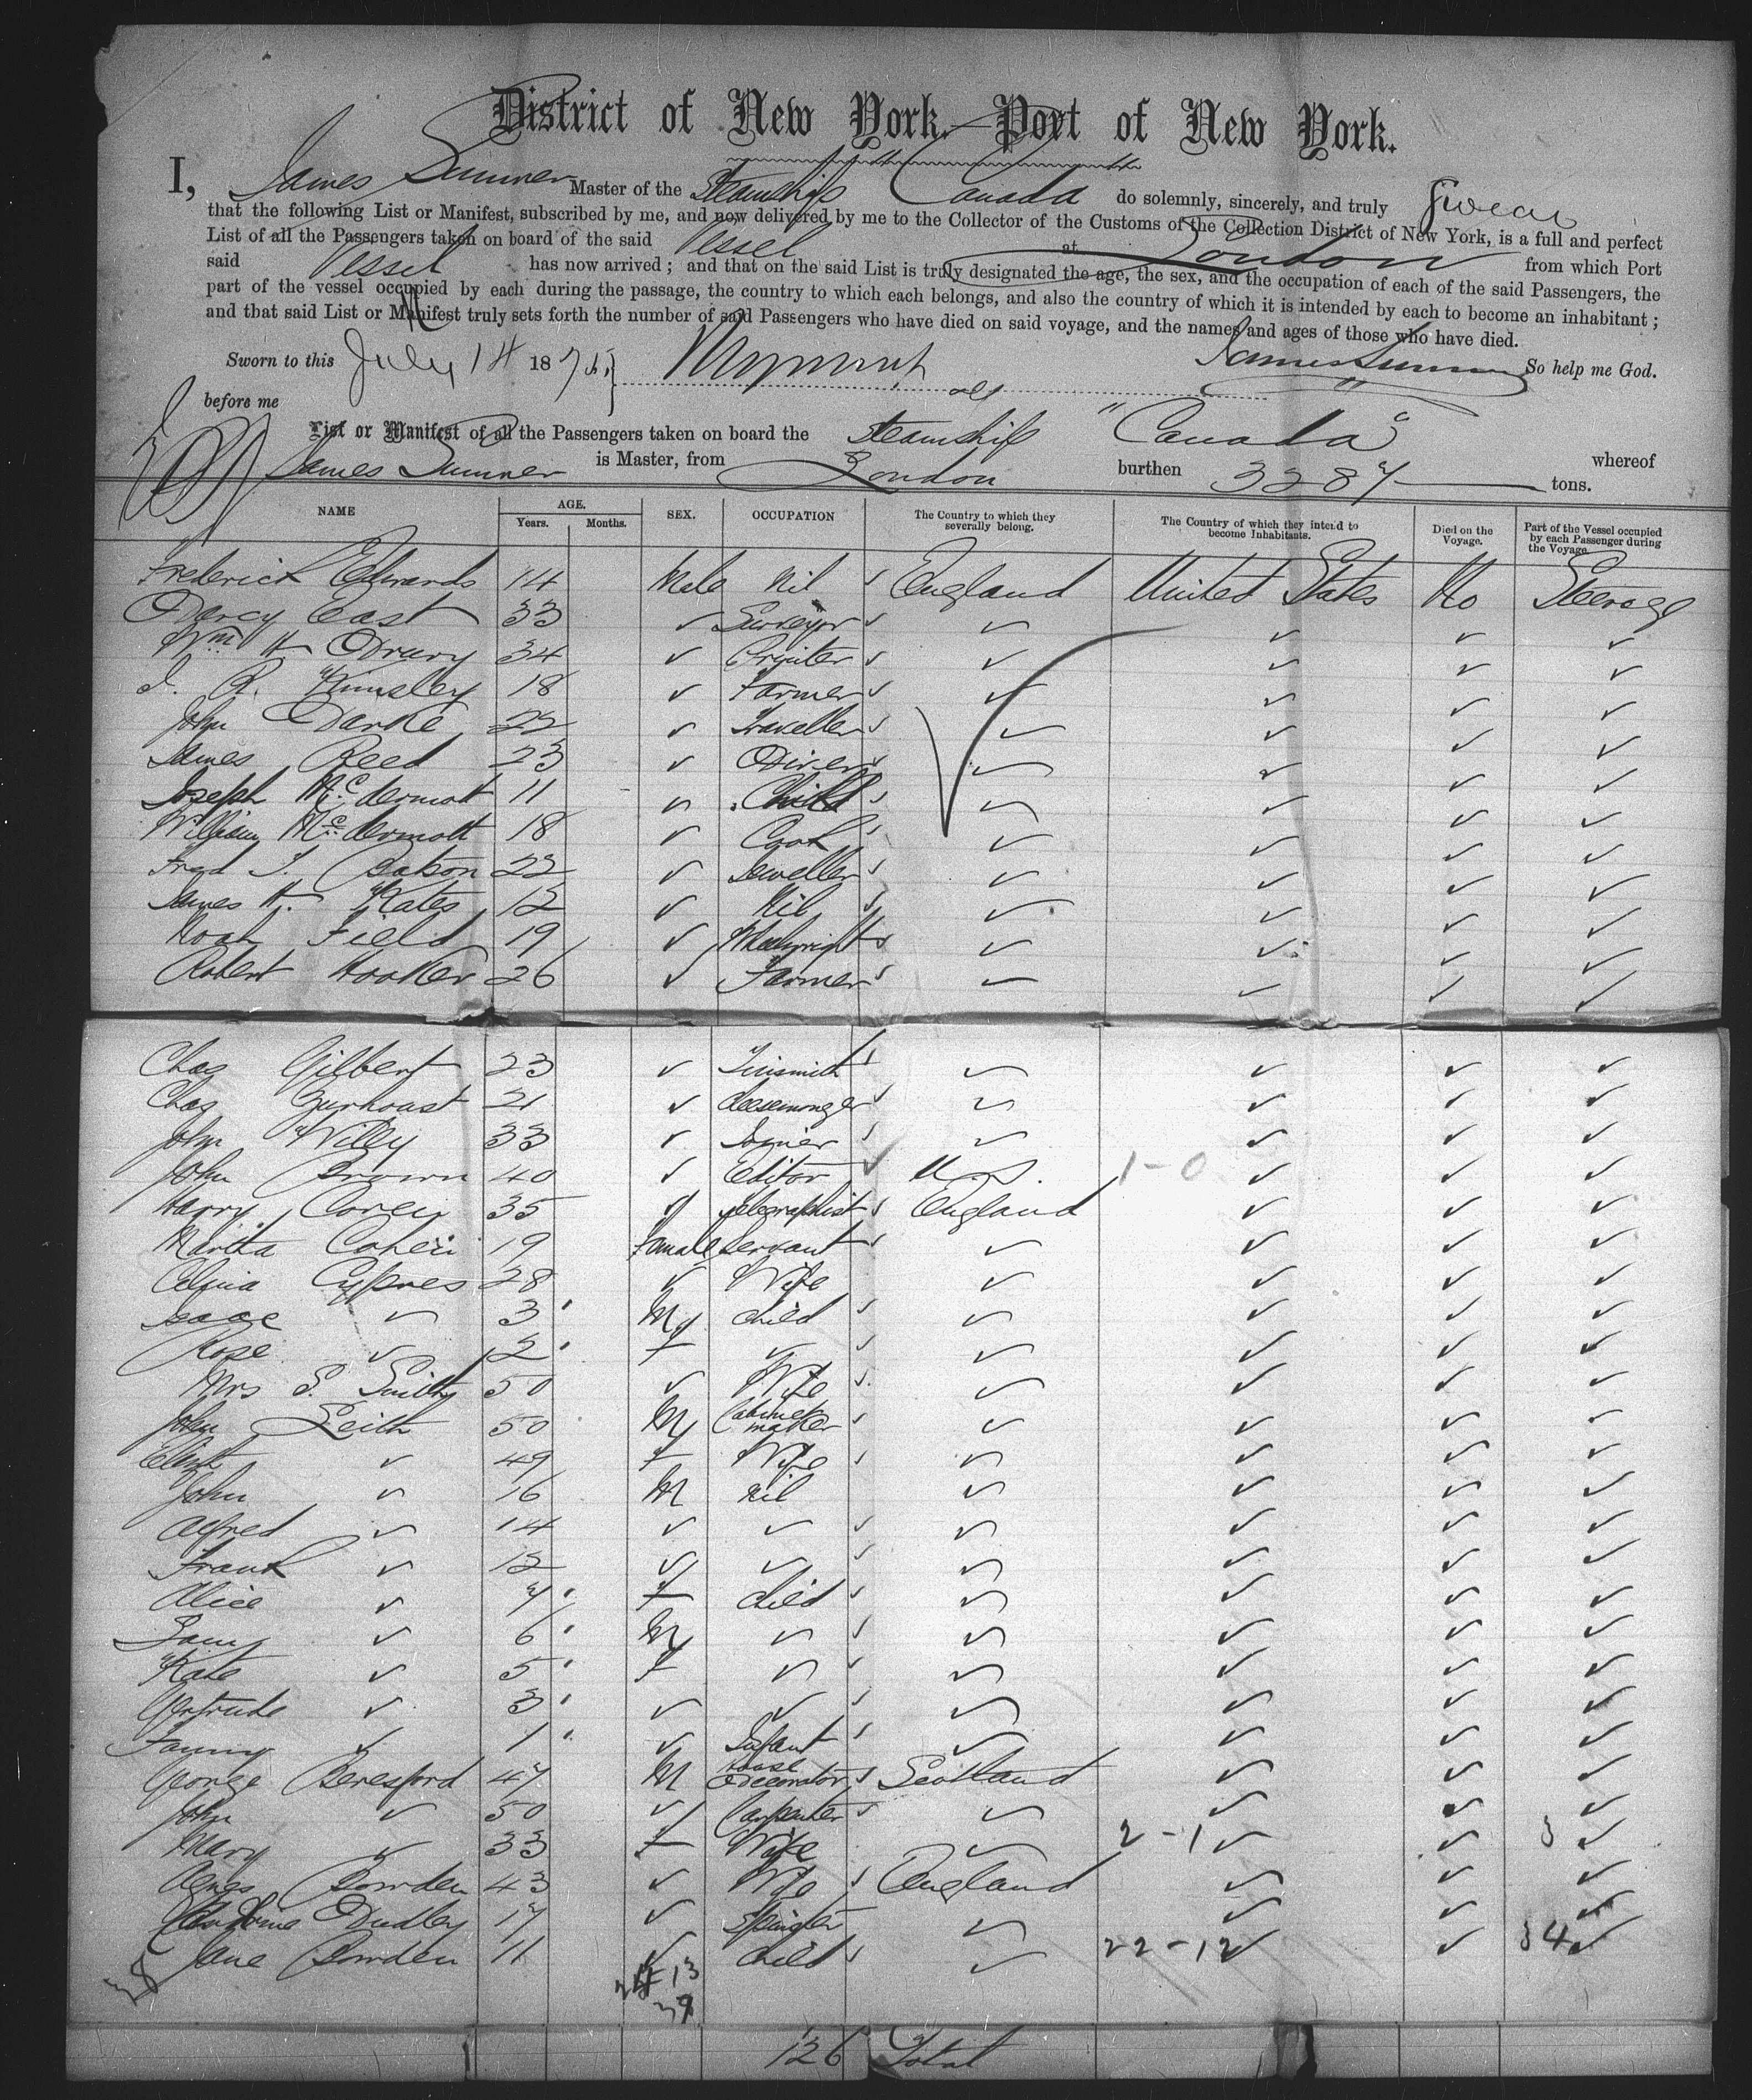 District of New York.—Port of New York.
I, James Sumner Master of the Steamship Canada do solemnly, sincerely, and truly swear
that the following List or Manifest, subscribed by me, and now delivered by me to the Collector of the Customs of the Collection District of New York, is a full and perfect
List of all the Passengers taken on board of the said Vessel at London from which Port
said Vessel has now arrived; and that on the said List is truly designated the age, the sex, and the occupation of each of the said Passengers, the
part of the vessel occupied by each during the passage, the country to which each belongs, and also the country of which it is intended by each to become an inhabitant;
and that said List or Manifest truly sets forth the number of said Passengers who have died on said voyage, and the names and ages of those who have died.
Sworn to this July 14 1875 James Sumner So help me God.
before me
List or Manifest of all the Passengers taken on board the Steamship "Canada" whereof
James Sumner is Master, from London burthen 3287 tons.
NAME AGE. Years. Months. SEX. OCCUPATION The Country to which they severally belong. The Country of which they intend to become Inhabitants. Died on the Voyage. Part of the Vessel occupied by each Passenger during the Voyage.
Frederick Edwards 14 Male Nil England United States No Steerage
Darcy East 33 ✓ Surveyor ✓ ✓ ✓ ✓
Wm H Drury 34 ✓ Printer ✓ ✓ ✓ ✓
J. R. Kinsley 18 ✓ Farmer ✓ ✓ ✓ ✓
John Darke 22 ✓ Traveller ✓ ✓ ✓ ✓
James Reed 23 ✓ ✓ ✓ ✓ ✓
Joseph McDermott 11 ✓ Child ✓ ✓ ✓ ✓
William McDermott 18 ✓ Cook ✓ ✓ ✓ ✓
Fred J. Batson 22 ✓ Jeweller ✓ ✓ ✓ ✓
James H. Kates 12 ✓ Nil ✓ ✓ ✓ ✓
Noah Field 19 ✓ Wheelwright ✓ ✓ ✓ ✓
Robert Hooker 26 ✓ Farmer ✓ ✓ ✓ ✓
Chas Gilbert 23 ✓ Tinsmith ✓ ✓ ✓ ✓
Chas 21 ✓ Cheesemonger ✓ ✓ ✓ ✓
John Willy 33 ✓ Joiner ✓ ✓ ✓ ✓
John Brown 40 ✓ Editor U.S. 1-0 ✓ ✓ ✓
Harry 35 ✓ Telegraphist England ✓ ✓ ✓
Martha Cohen 19 Female Servant ✓ ✓ ✓ ✓
Cypres 28 ✓ Wife ✓ ✓ ✓ ✓
Isaac ✓ 3 M Child ✓ ✓ ✓ ✓
Rose ✓ 2 F ✓ ✓ ✓ ✓ ✓
Mrs S. Smith 50 ✓ Wife ✓ ✓ ✓ ✓
John Leith 50 M Cabinet maker ✓ ✓ ✓ ✓
Elizth ✓ 49 F Wife ✓ ✓ ✓ ✓
John ✓ 16 M Nil ✓ ✓ ✓ ✓
Alfred ✓ 14 ✓ ✓ ✓ ✓ ✓ ✓
Frank ✓ 12 ✓ ✓ ✓ ✓ ✓ ✓
Alice ✓ 7 F Child ✓ ✓ ✓ ✓
✓ 6 M ✓ ✓ ✓ ✓ ✓
Kate ✓ 5 F ✓ ✓ ✓ ✓ ✓
Gertrude ✓ 3 ✓ ✓ ✓ ✓ ✓ ✓
Fanny ✓ 1 ✓ Infant ✓ ✓ ✓ ✓
George Beresford 47 M House Decorator Scotland ✓ ✓ ✓
John ✓ 50 ✓ Carpenter ✓ ✓ ✓ ✓
Mary ✓ 33 F Wife ✓ 2-1 ✓ ✓ 3 ✓
Agnes Bowden 43 ✓ Wife England ✓ ✓ ✓
Dudley 17 ✓ Spinster ✓ ✓ ✓ ✓
Jane Bowden 11 ✓ Child ✓ 22-12 ✓ ✓ 34 ✓
126 Total